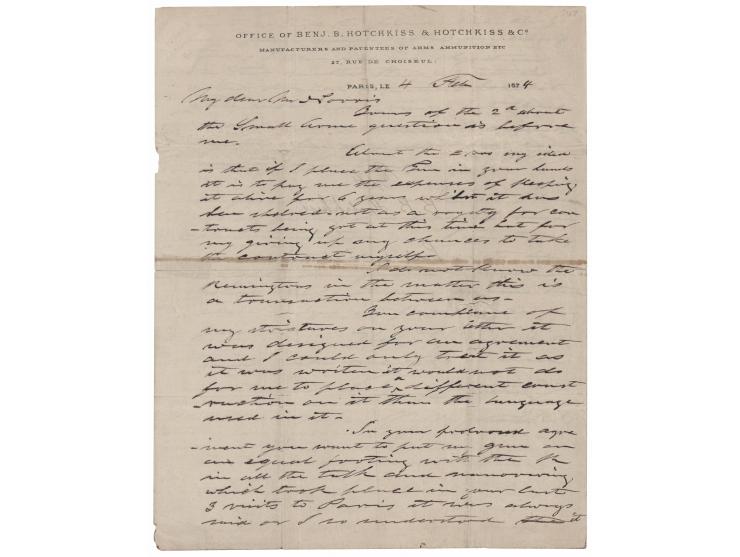 OFFICE OF BENJ. B. HOTCHKISS & HOTCHKISS & Co
MANUFACTURERS AND PATENTEES OF ARMS AMMUNITION ETC
27, RUE DE CHOISEUL.
PARIS, LE 4 Feb 1874
My dear Mr Norris
Yours of the 2d about
the Small Arms question is before
me.
About the my idea
is that if I place the Gun in your hands
it is to pay me the expenses of keeping
it alive for 6 years it has
been shelved - not as a royalty for con
-tracts being got at this time but for
my giving up any chances to take
the contract myself.
I do not know the
Remingtons in the matter this is
a transaction between us -
You complaine of
my strictures on your letter it
was designed for an agreement
and I could only treat it as
it was written it would not do
for me to place a different const
-ruction on it than the language
used in it -
In your proposed agre
-ment you want to put my gun on
an equal footing with the R
in all the talk and
which took place in your last
3 visits to Paris it was always
said or I so understood it